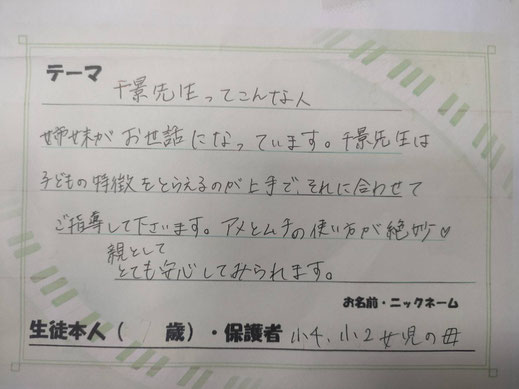 テーマ
千景先生ってこんな人
姉妹がお世話になっています。千景先生は
子どもの特徴をとらえるのが上手で、それに合わせて
ご指導して下さいます。アメとムチの使い方が絶妙♡
親として
とても安心してみられます。
お名前・ニックネーム
生徒本人（　　歳）・保護者 小4、小2女児の母